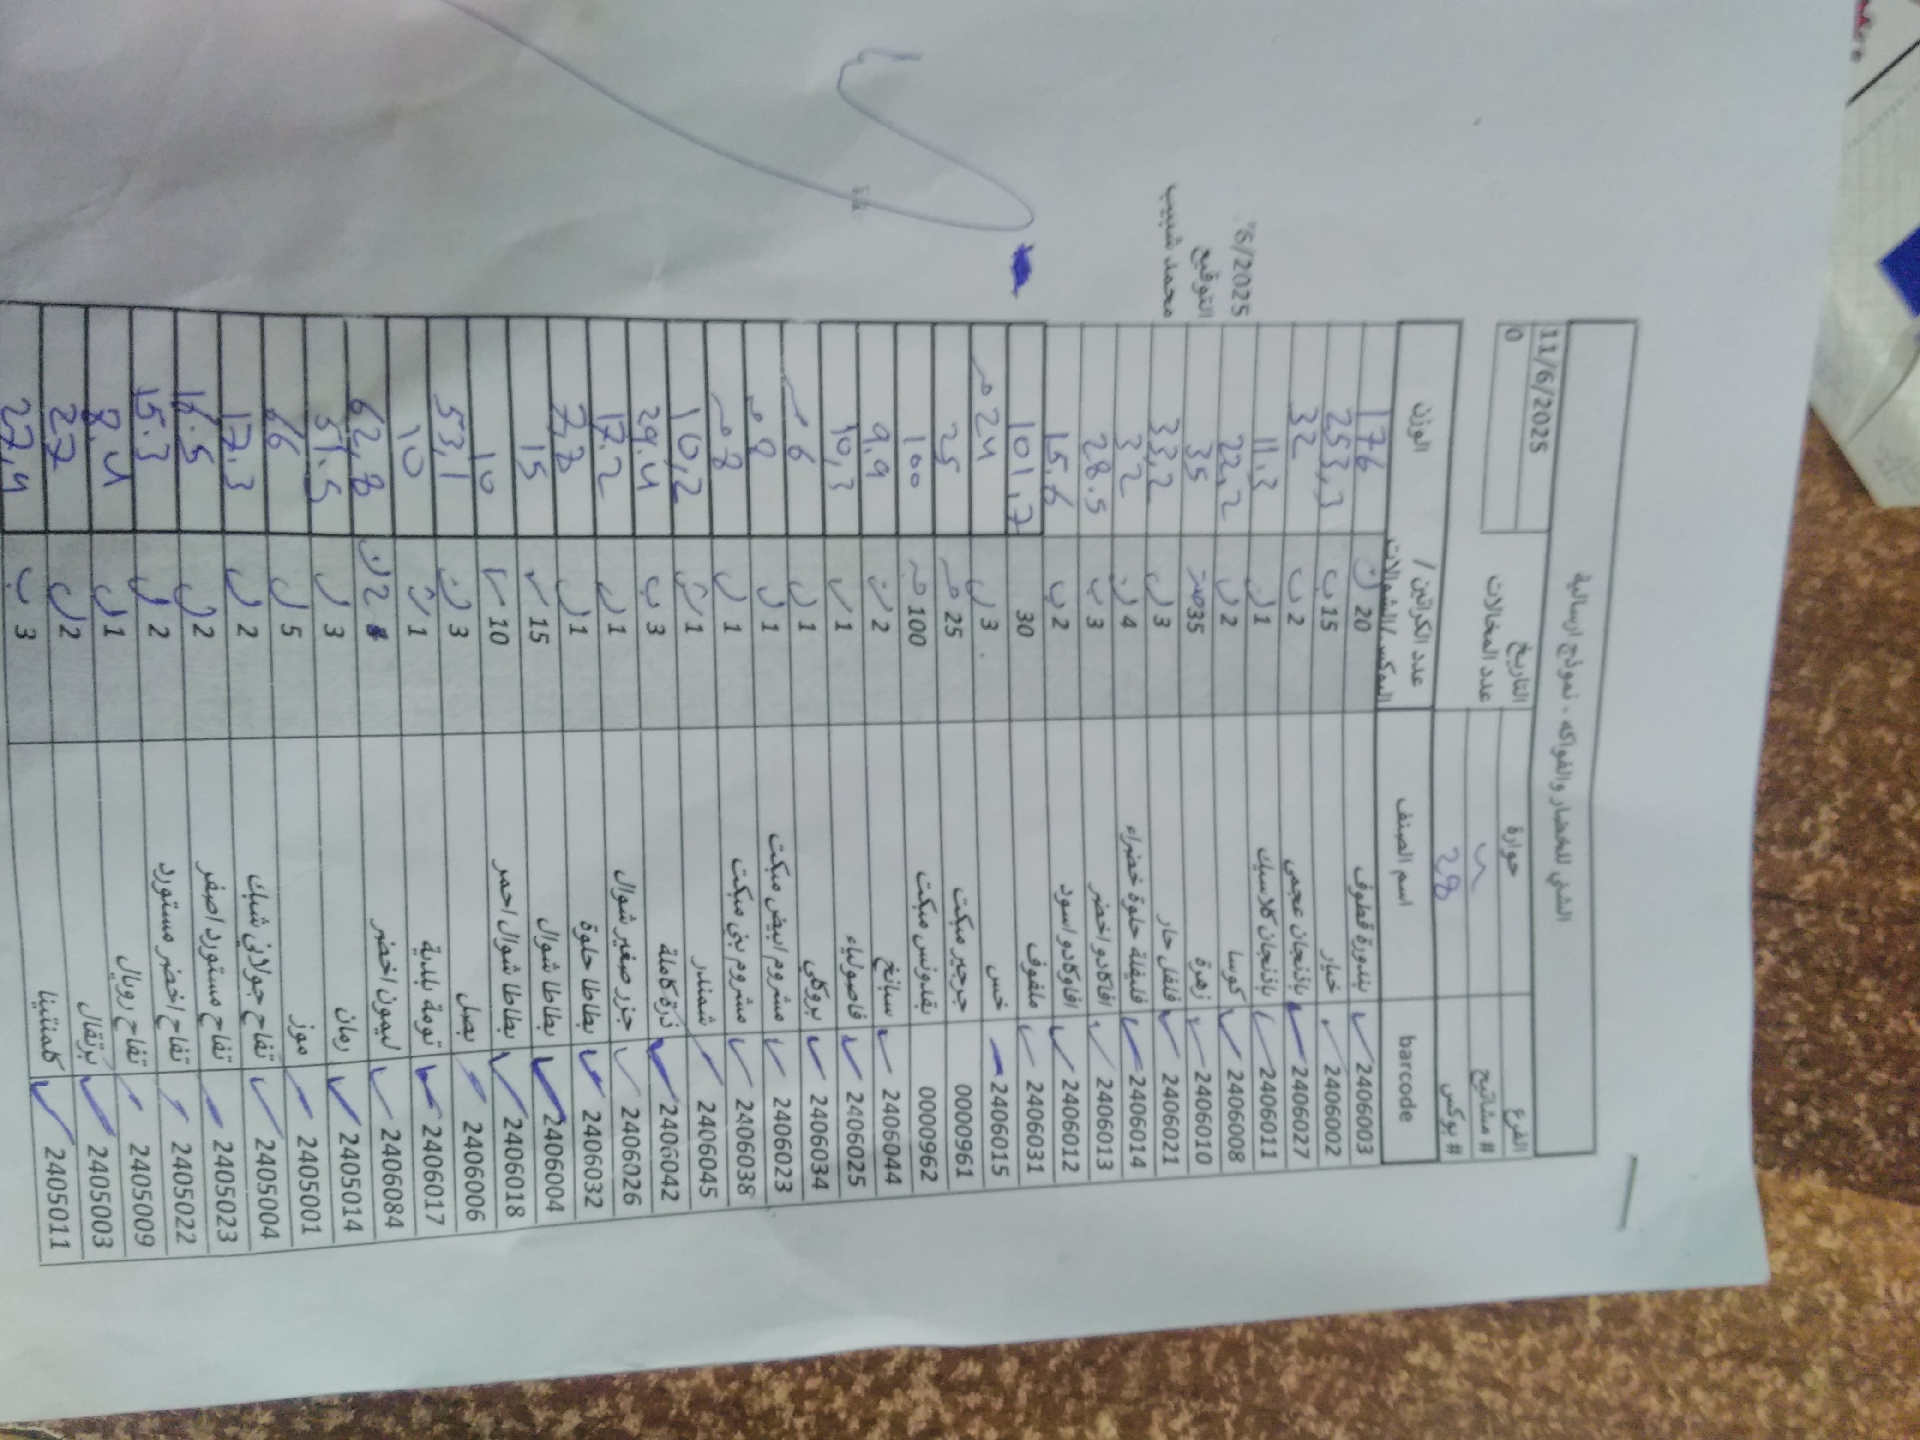 الشني للخضار والفواكه - نموذج ارسالية
الفرع حوارة التاريخ 11/6/2025
# مشاتيح عدد المخالات 0
# بوكس 28
barcode اسم الصنف عدد الكراتين / البوكس/الشوالات الوزن
2406003 بندورة قطوف 20 176
2406002 خيار 15 ب 253,3
2406027 باذنجان عجمي 2 ب 32
2406011 باذنجان كلاسيك 1 ل 11.3
2406008 كوسا 2 ل 22,2
2406010 زهرة 35 35
2406021 فلفل حار 3 ل 33,2
2406014 فليفلة حلوة خضراء 4 ل 32
2406013 افاكادو اخضر 3 ب 28.5
2406012 افاوكادو اسود 2 ب 15.6
2406031 ملفوف 30 101,7
2406015 خس 3 ل 24
0000961 جرجير مبكت 25 25
0000962 بقدونس مبكت 100 100
2406044 سبانخ 2 9.9
2406025 فاصولياء 1 10,3
2406034 بروكلي 1 ل 6
2406023 مشروم ابيض مبكت 1 ل 8
2406038 مشروم بني مبكت 1 ل 8
2406045 شمندر 1 10,2
2406042 ذرة كاملة 3 ب 29.4
2406026 جزر صغير شوال 1 ل 17.2
2406032 بطاطا حلوة 1 ل 7,8
2406004 بطاطا شوال 15 15
2406018 بطاطا شوال احمر 10 10
2406006 بصل 3 53,1
2406017 تومة بلدية 1 10
2406084 ليمون اخضر 2 62,8
2405014 رمان 3 ل 51.5
2405001 موز 5 ل 66
2405004 تفاح جولاني شبك 2 ل 17.3
2405023 تفاح مستورد اصفر 2 ل 16.5
2405022 تفاح اخضر مستورد 2 ل 15.3
2405009 تفاح رويال 1 ل 8.4
2405003 برتقال 2 ل 27
2405011 كلمنتينا 3 ب 27,4
6/2025
التوقيع
محمد شبيب